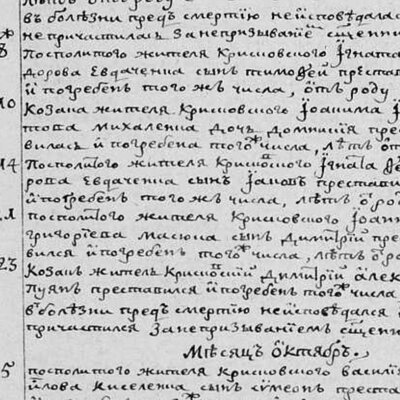 въ болѣзни предъ смертію неисповѣдалася
непричастилась Занепризываніемъ сщенни
8 Посполитого жителя Крисковского Игната
дорова Евдаченка сынъ тимоѳей престав
й погребенъ того жъ числа, ѿтъ роду
10 Козака жителя Крисковского Іоакима
това михаленка дочь домникія прес
вилась и погребена того жъ числа, лѣтъ ѿт
14 Посполитого жителя Крисковского Игната Ѳе
рова Евдаченка сынъ Іаковъ престави
й погребенъ того жъ числа, лѣтъ ѿ род
21 посполитого жителя Крисковского Іоанн
григоріева масюка сынъ Димитрій пре
вился й погребенъ того жъ числа, лѣтъ ѿ ро
23 Козакъ житель Крисковскій Димитрій Алек
Лупяк преставился й погребенъ того жъ числа
въ болѣзни предъ смертію неисповѣдался
причастился Занепризываніемъ сщенни
Мѣсяцъ Октябрь.
5 посполитого жителя Крисковского василі
йлова киселенка сынъ сѵмеонъ преста